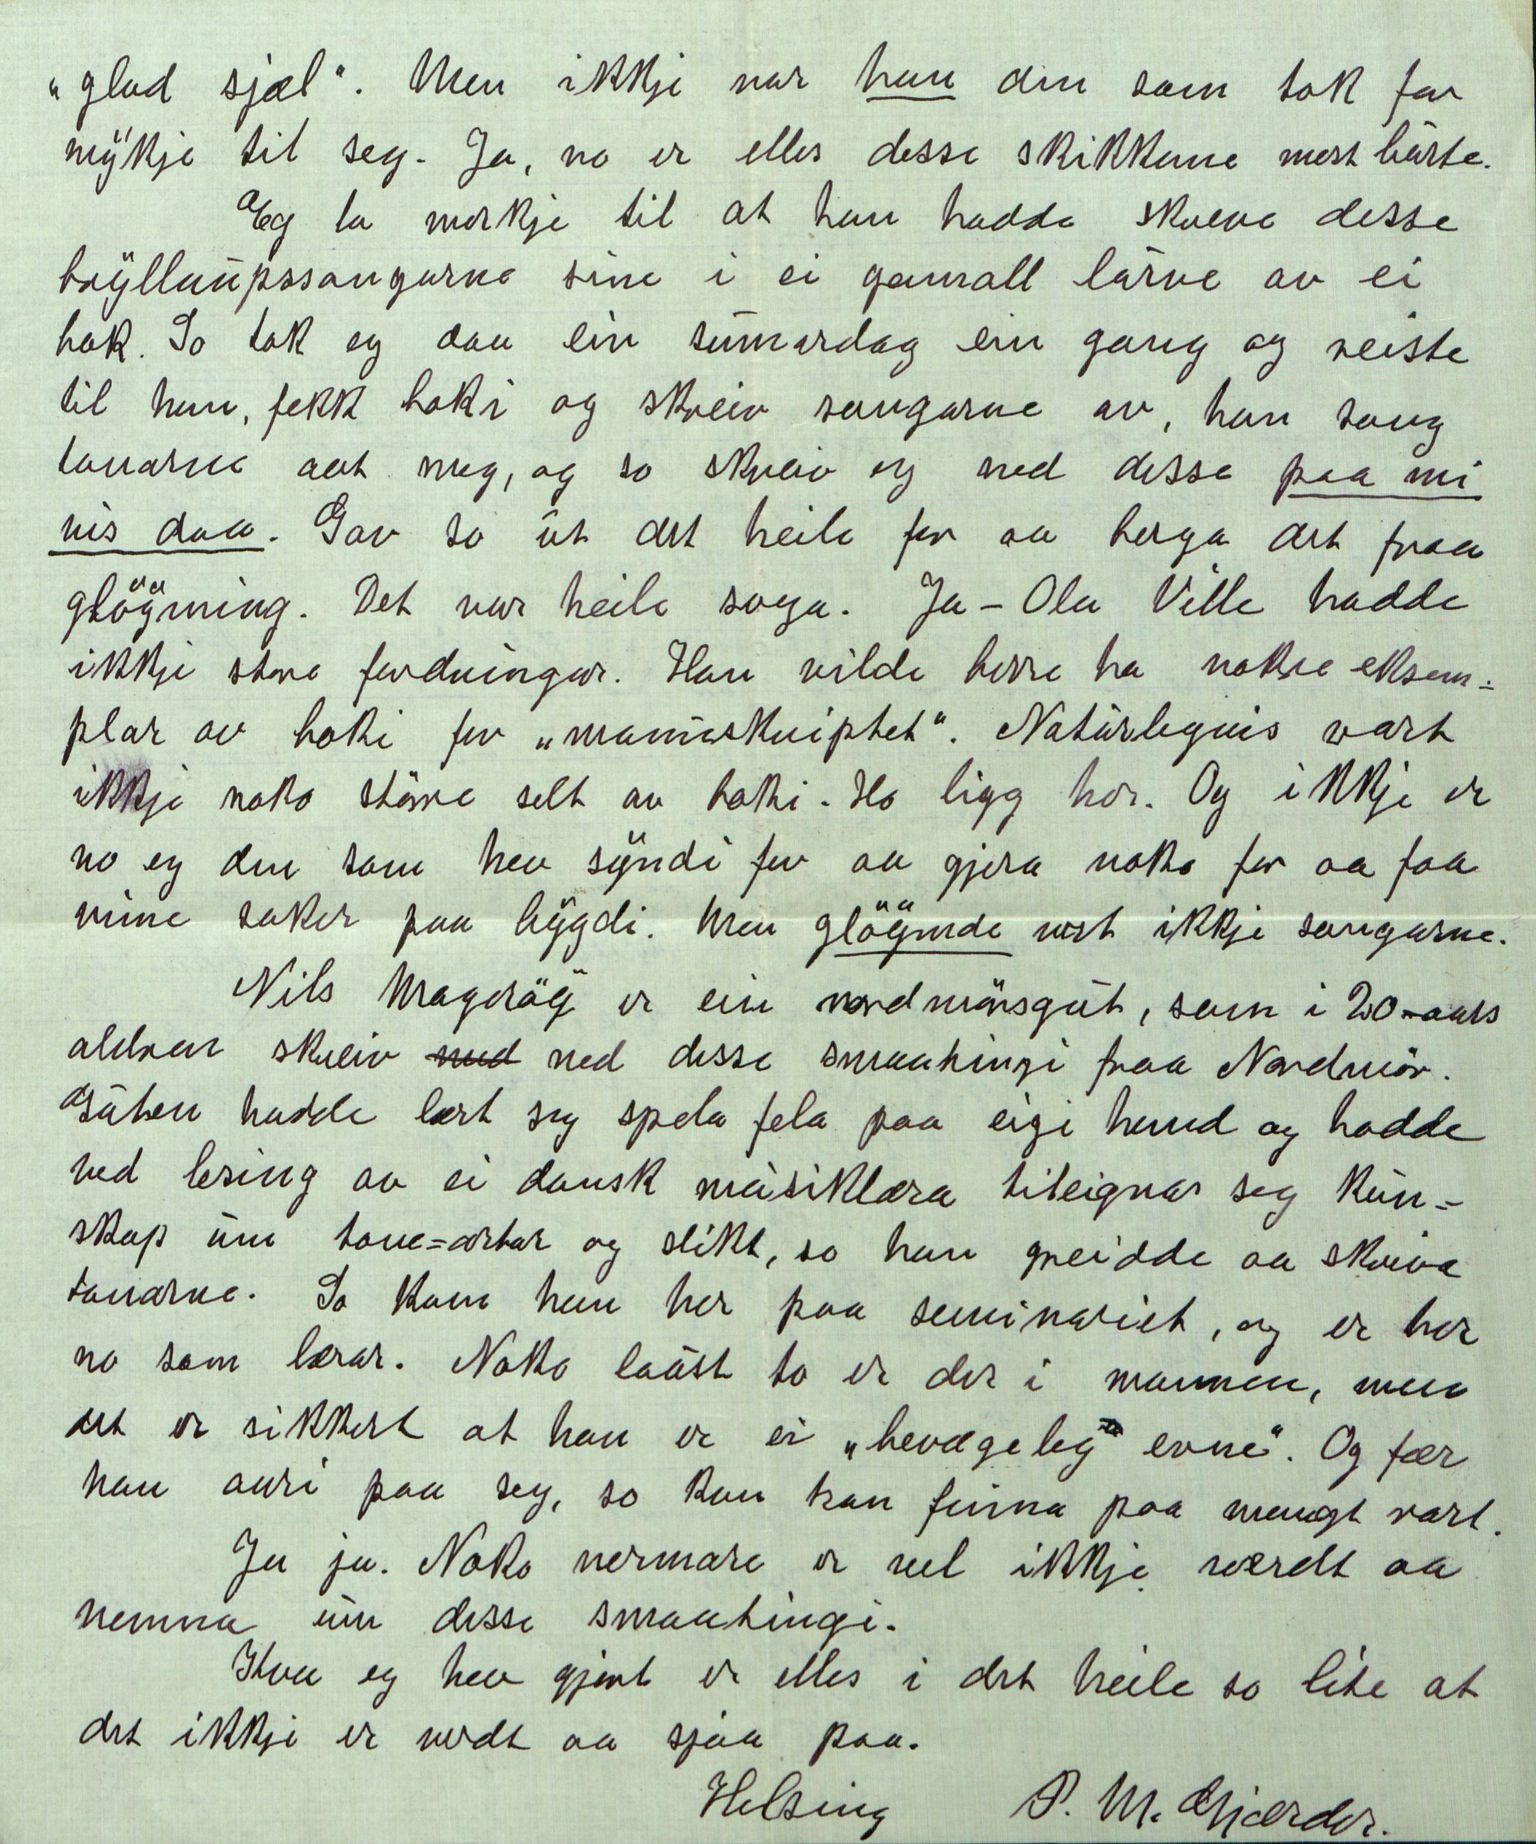 „glad sjæl“. Men ikkje var han den som tok for
mykje til seg. Ja, no er elles desse skikkane mest burte.
Eg la merkje til at han hadde skreve desse
bryllaupssongarne sine i ei gamall lurve av ei
bok. So tok eg daa ein sumardag ein gong og reiste
til han, fekk boki og skreiv songarne av, han song
tonarne aat meg, og so skreiv eg ned desse paa mi
vis daa. Gav so ut det heile for aa berga det fraa
gløyming. Det var heile soga. Ja - Ola Ville hadde
ikkje store fordringar. Han vilde berre ha nokre eksem=
plar av boki for „manuskriptet“. Naturlegvis vart
ikkje noko større selt av boki. Ho ligg her. Og ikkje er
no eg den som hev syndi for aa gjera noko for aa faa
mine saker paa bygdi. Men gløymde vert ikkje songarne.
Nils Magerøy er ein nordmørsgut, som i 20-aars
alderen skreiv ned desse smaatingi fraa Nordmør.
Guten hadde lært seg spela fela paa eigi hand og hadde
ved lesing av ei dansk musiklæra tileignar seg kun=
skap um tone=artar og slikt, so han greidde aa skriva
tonarne. So kom han her paa seminariet, og er her
no som lærar. Noko laust to er der i mannen, men
det er sikkert at han er ei „bevægeleg evne“. Og fær
han auri paa seg, so kan han finna paa mangt rart.
Ja ja. Noko nermare er vel ikkje værdt aa
nemna um desse smaatingi.
Hva eg hev gjort er elles i det heile so lite at
det ikkje er verdt aa sjaa paa.
Helsing P. M. Gjærder.